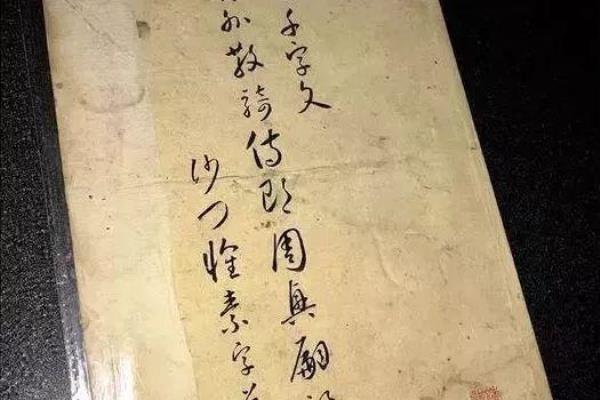 千字文
外散騎侍郎周興嗣
沙門懷素字